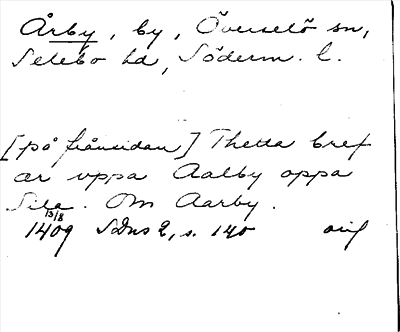 Årby, by, Överselö sn,
Selebo hd, Söderm. l.
[på frånsidan] Thetta bref
ær vppa Aalby oppa
Sila. Om Aarby.
13/8
1409 SDns 2, s. 140 orig